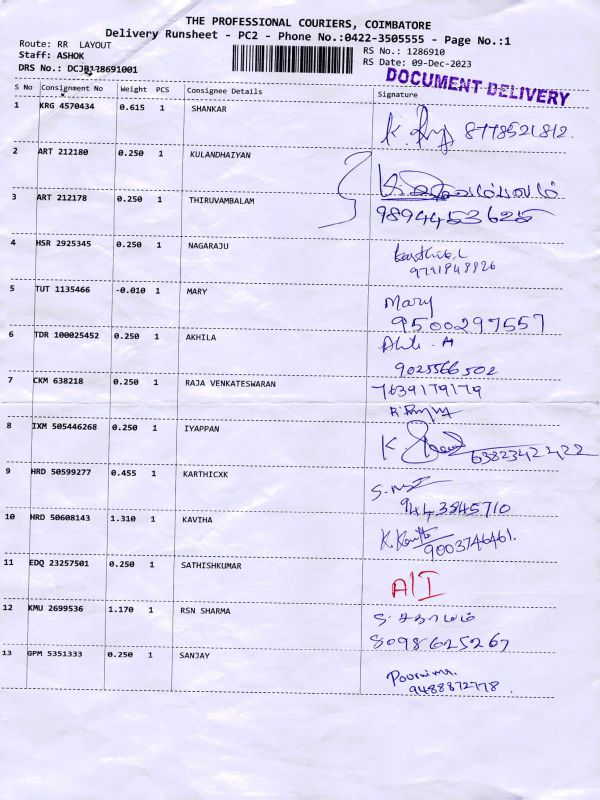 THE PROFESSIONAL COURIERS, COIMBATORE
Delivery Runsheet - PC2 - Phone No.:0422-3505555 - Page No.:1
Route: RR LAYOUT
RS No.: 1286910
Staff: ASHOK
RS Date: 09-Dec-2023
DRS No.: DCJB128691001
DOCUMENT DELIVERY
S No Consignment No Weight PCS Consignee Details Signature
1 KRG 4570434 0.615 1 SHANKAR
K 8778521812.
2 ART 212180 0.250 1 KULANDHAIYAN
3 ART 212178 0.250 1 THIRUVAMBALAM
9894453625
4 HSR 2925345 0.250 1 NAGARAJU
Karthik.L
9791848826
5 TUT 1135466 -0.010 1 MARY
Mary
9500297557
6 TDR 100025452 0.250 1 AKHILA
Akila. A
9025566502
7 CKM 638218 0.250 1 RAJA VENKATESWARAN
7639179179
8 IXM 505446268 0.250 1 IYAPPAN
K 6382342422
9 HRD 50599277 0.455 1 KARTHICXK
9443845710
10 HRD 50608143 1.310 1 KAVIHA
K. 9003746461.
11 EDQ 23257501 0.250 1 SATHISHKUMAR
A/I
12 KMU 2699536 1.170 1 RSN SHARMA
8098625267
13 GPM 5351333 0.250 1 SANJAY
Poornima.
9488872778.